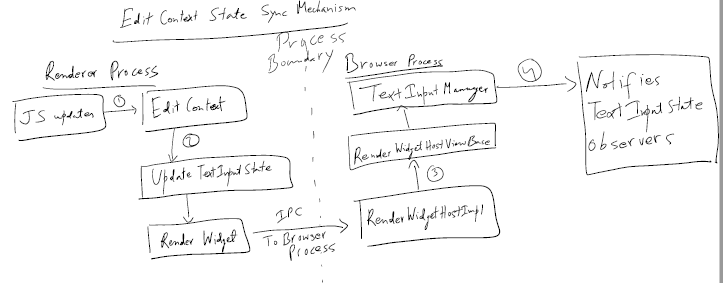 Edit Context State Sync Mechanism
Process
Boundary
Renderer Process
Browser Process
JS updates
1
Edit Context
2
Update TextInputState
Render Widget
IPC
To Browser
Process
RenderWidgetHostImpl
3
RenderWidgetHostViewBase
Text Input Manager
4
Notifies
Text Input State
observers